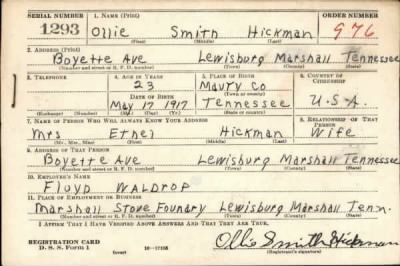 SERIAL NUMBER 1. NAME (Print) ORDER NUMBER
1293 Ollie Smith Hickman 976
(First) (Middle) (Last)
2. ADDRESS (Print)
Boyette Ave Lewisburg Marshall Tennessee
(Number and street or R. F. D. number) (Town) (County) (State)
3. TELEPHONE 4. AGE IN YEARS 5. PLACE OF BIRTH 6. COUNTRY OF CITIZENSHIP
23 Maury Co
DATE OF BIRTH (Town or county)
May 17 1917 Tennessee U.S.A.
(Exchange) (Number) (Mo.) (Day) (Yr.) (State or country)
7. NAME OF PERSON WHO WILL ALWAYS KNOW YOUR ADDRESS 8. RELATIONSHIP OF THAT PERSON
Mrs Ethel Hickman Wife
(Mr., Mrs., Miss) (First) (Middle) (Last)
9. ADDRESS OF THAT PERSON
Boyette Ave Lewisburg Marshall Tennessee
(Number and street or R. F. D. number) (Town) (County) (State)
10. EMPLOYER'S NAME
Floyd Waldrop
11. PLACE OF EMPLOYMENT OR BUSINESS
Marshall Stove Foundry Lewisburg Marshall Tenn.
(Number and street or R. F. D. number) (Town) (County) (State)
I AFFIRM THAT I HAVE VERIFIED ABOVE ANSWERS AND THAT THEY ARE TRUE.
REGISTRATION CARD Ollie Smith Hickman
D. S. S. Form 1 (over) (Registrant's signature)